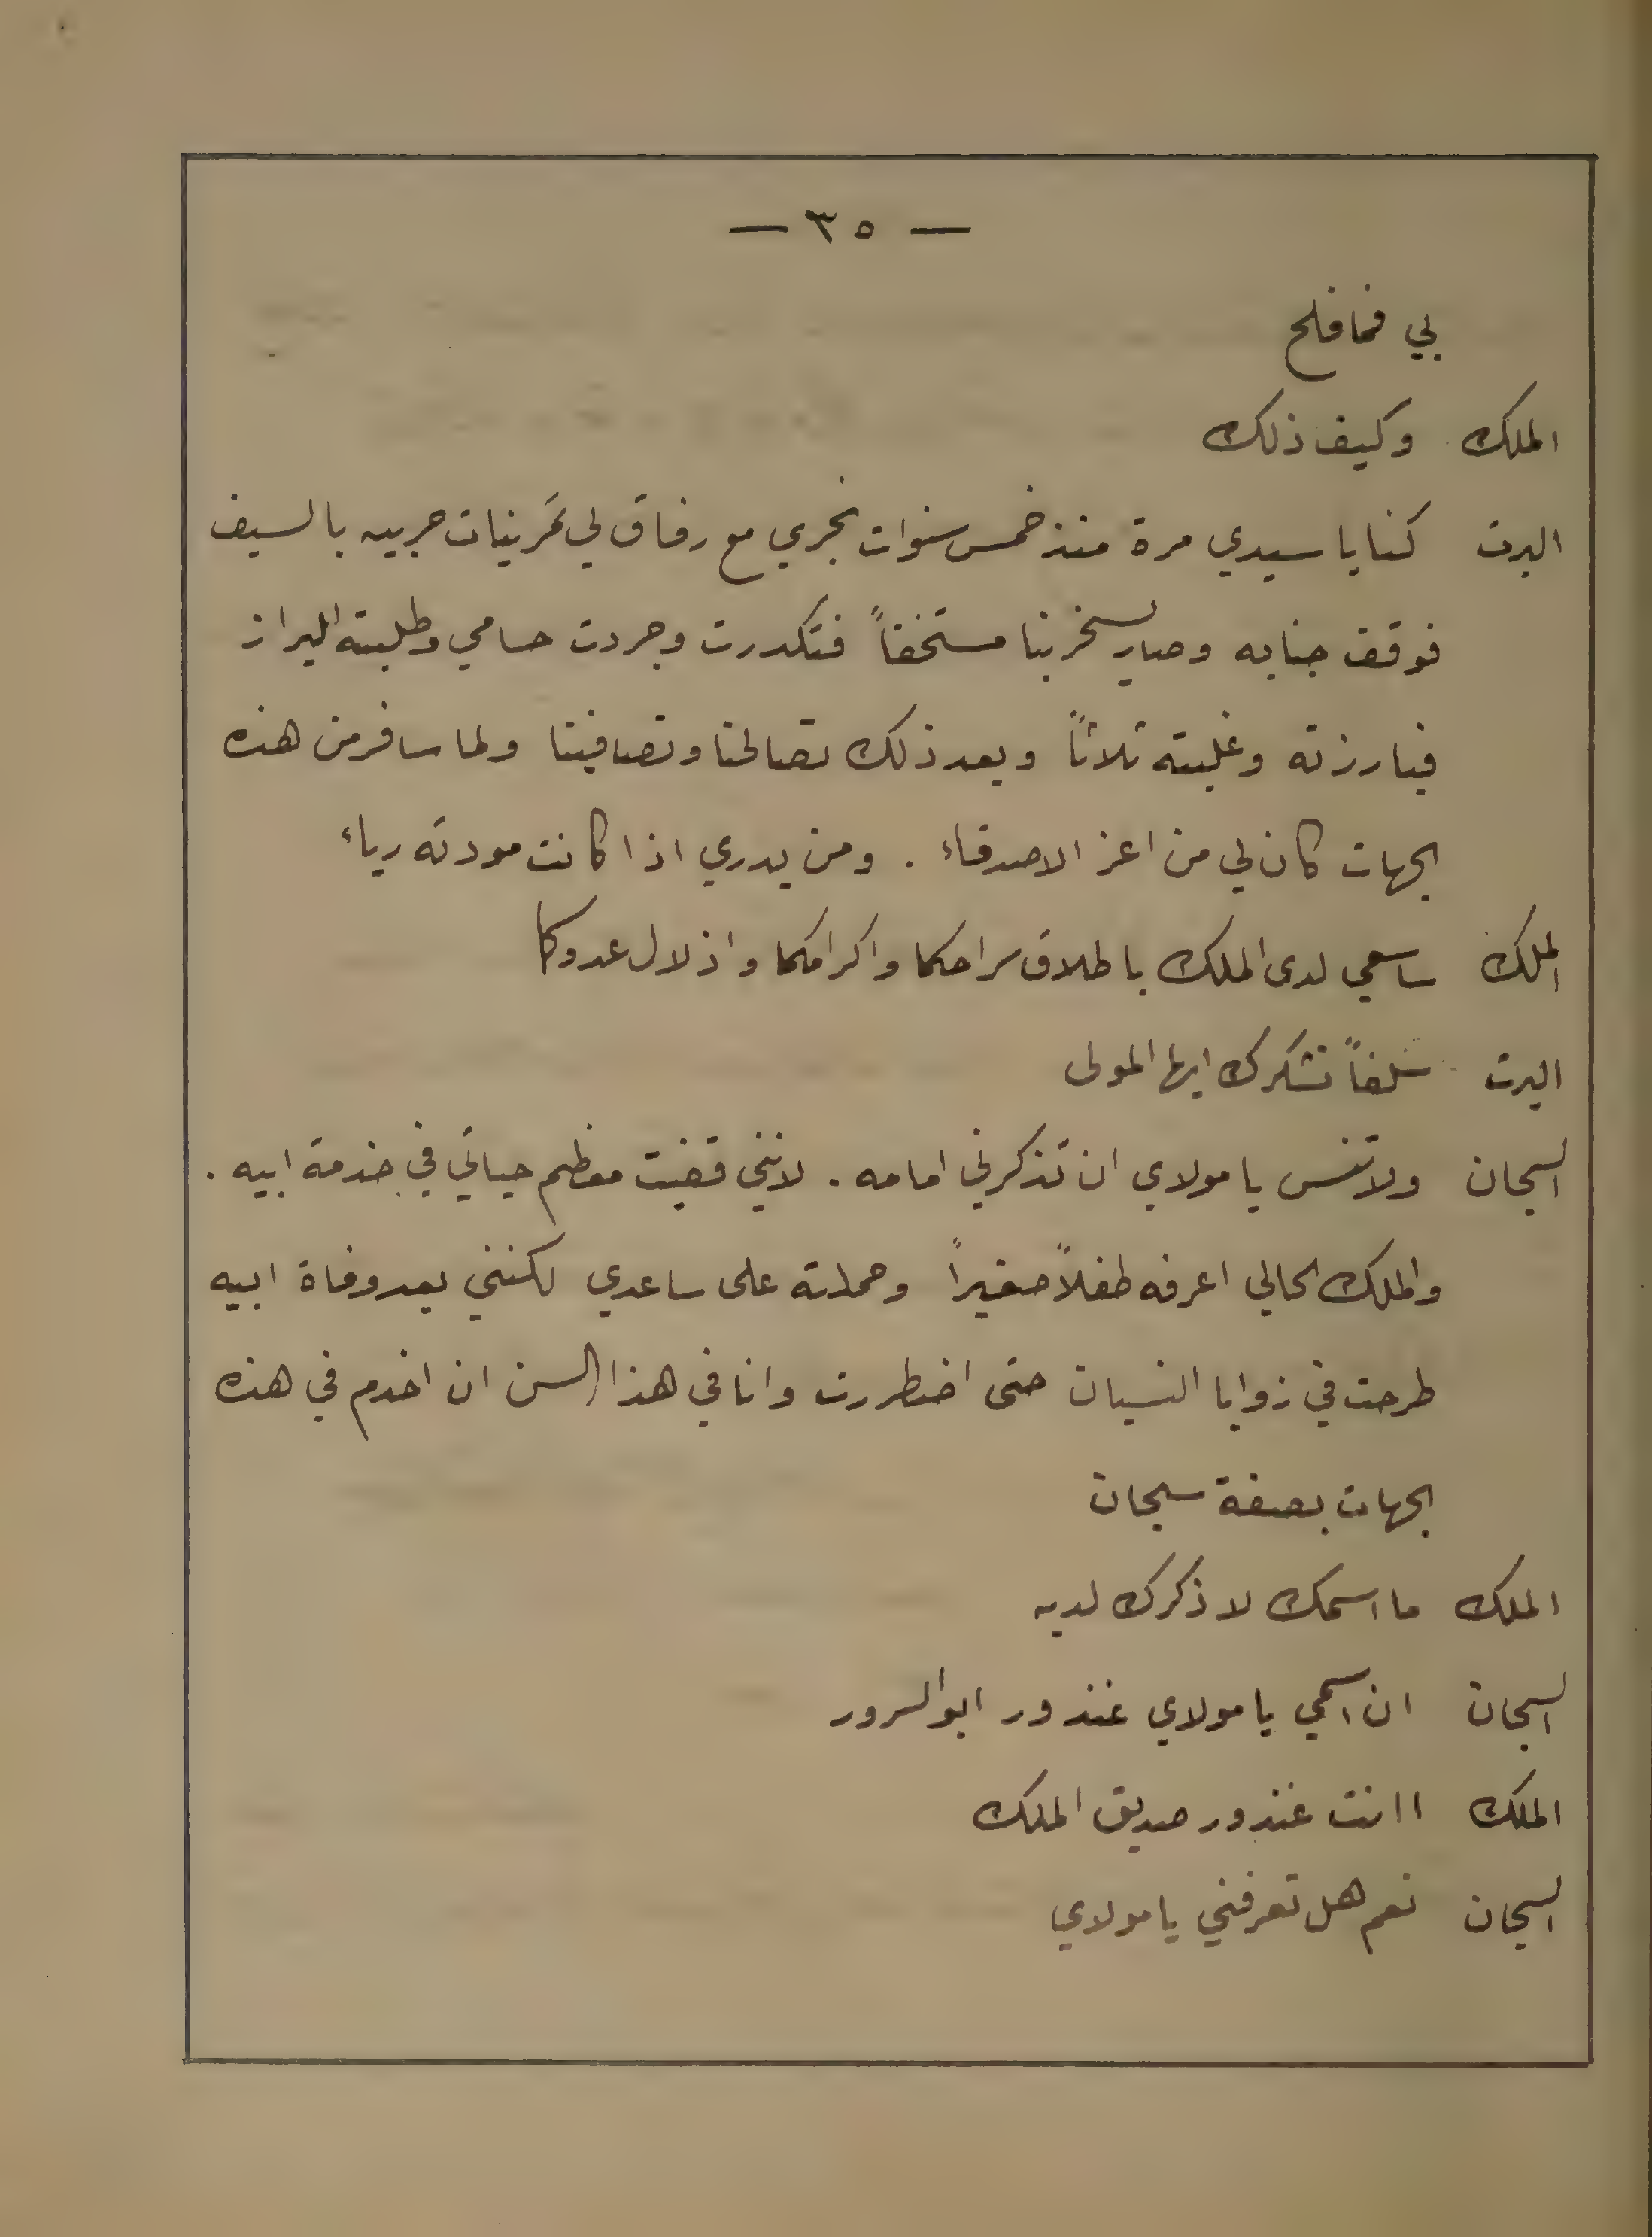 — ٣٥ —
بي فما فلح
الملك وكيف ذلك
البرت كنا يا سيدي مرة منذ خمس سنوات نجري مع رفاق لي تمرينات حربيه بالسيف
فوقف جنابه وصار يسخر بنا مستخفاً فتكدرت وجردت حسامي وطلبته للبراز
فبارزته وغلبته ثلاثاً وبعد ذلك تصالحنا وتصافينا ولما سافر من هذه
الجهات كان لي من اعز الاصدقاء . ومن يدري اذا كانت مودته رياء
الملك ساسعى لدى الملك باطلاق سراحكما واكرامكما واذلال عدوكما
البرت سلفاً نشكرك ايها المولى
السجان ولا تنس يا مولاي ان تذكرني امامه . لانني قضيت معظم حياتي في خدمة ابيه .
والملك الحالي اعرفه طفلاً صغيراً وحملته على ساعدي لكنني بعد وفاة ابيه
طرحت في زوايا النسيان حتى اضطررت وانا في هذا السن ان اخدم في هذه
الجهات بصفة سجان
الملك ما اسمك لاذكرك لديه
السجان ان اسمي يا مولاي غندور ابو السرور
الملك اانت غندور صديق الملك
السجان نعم هل تعرفني يا مولاي